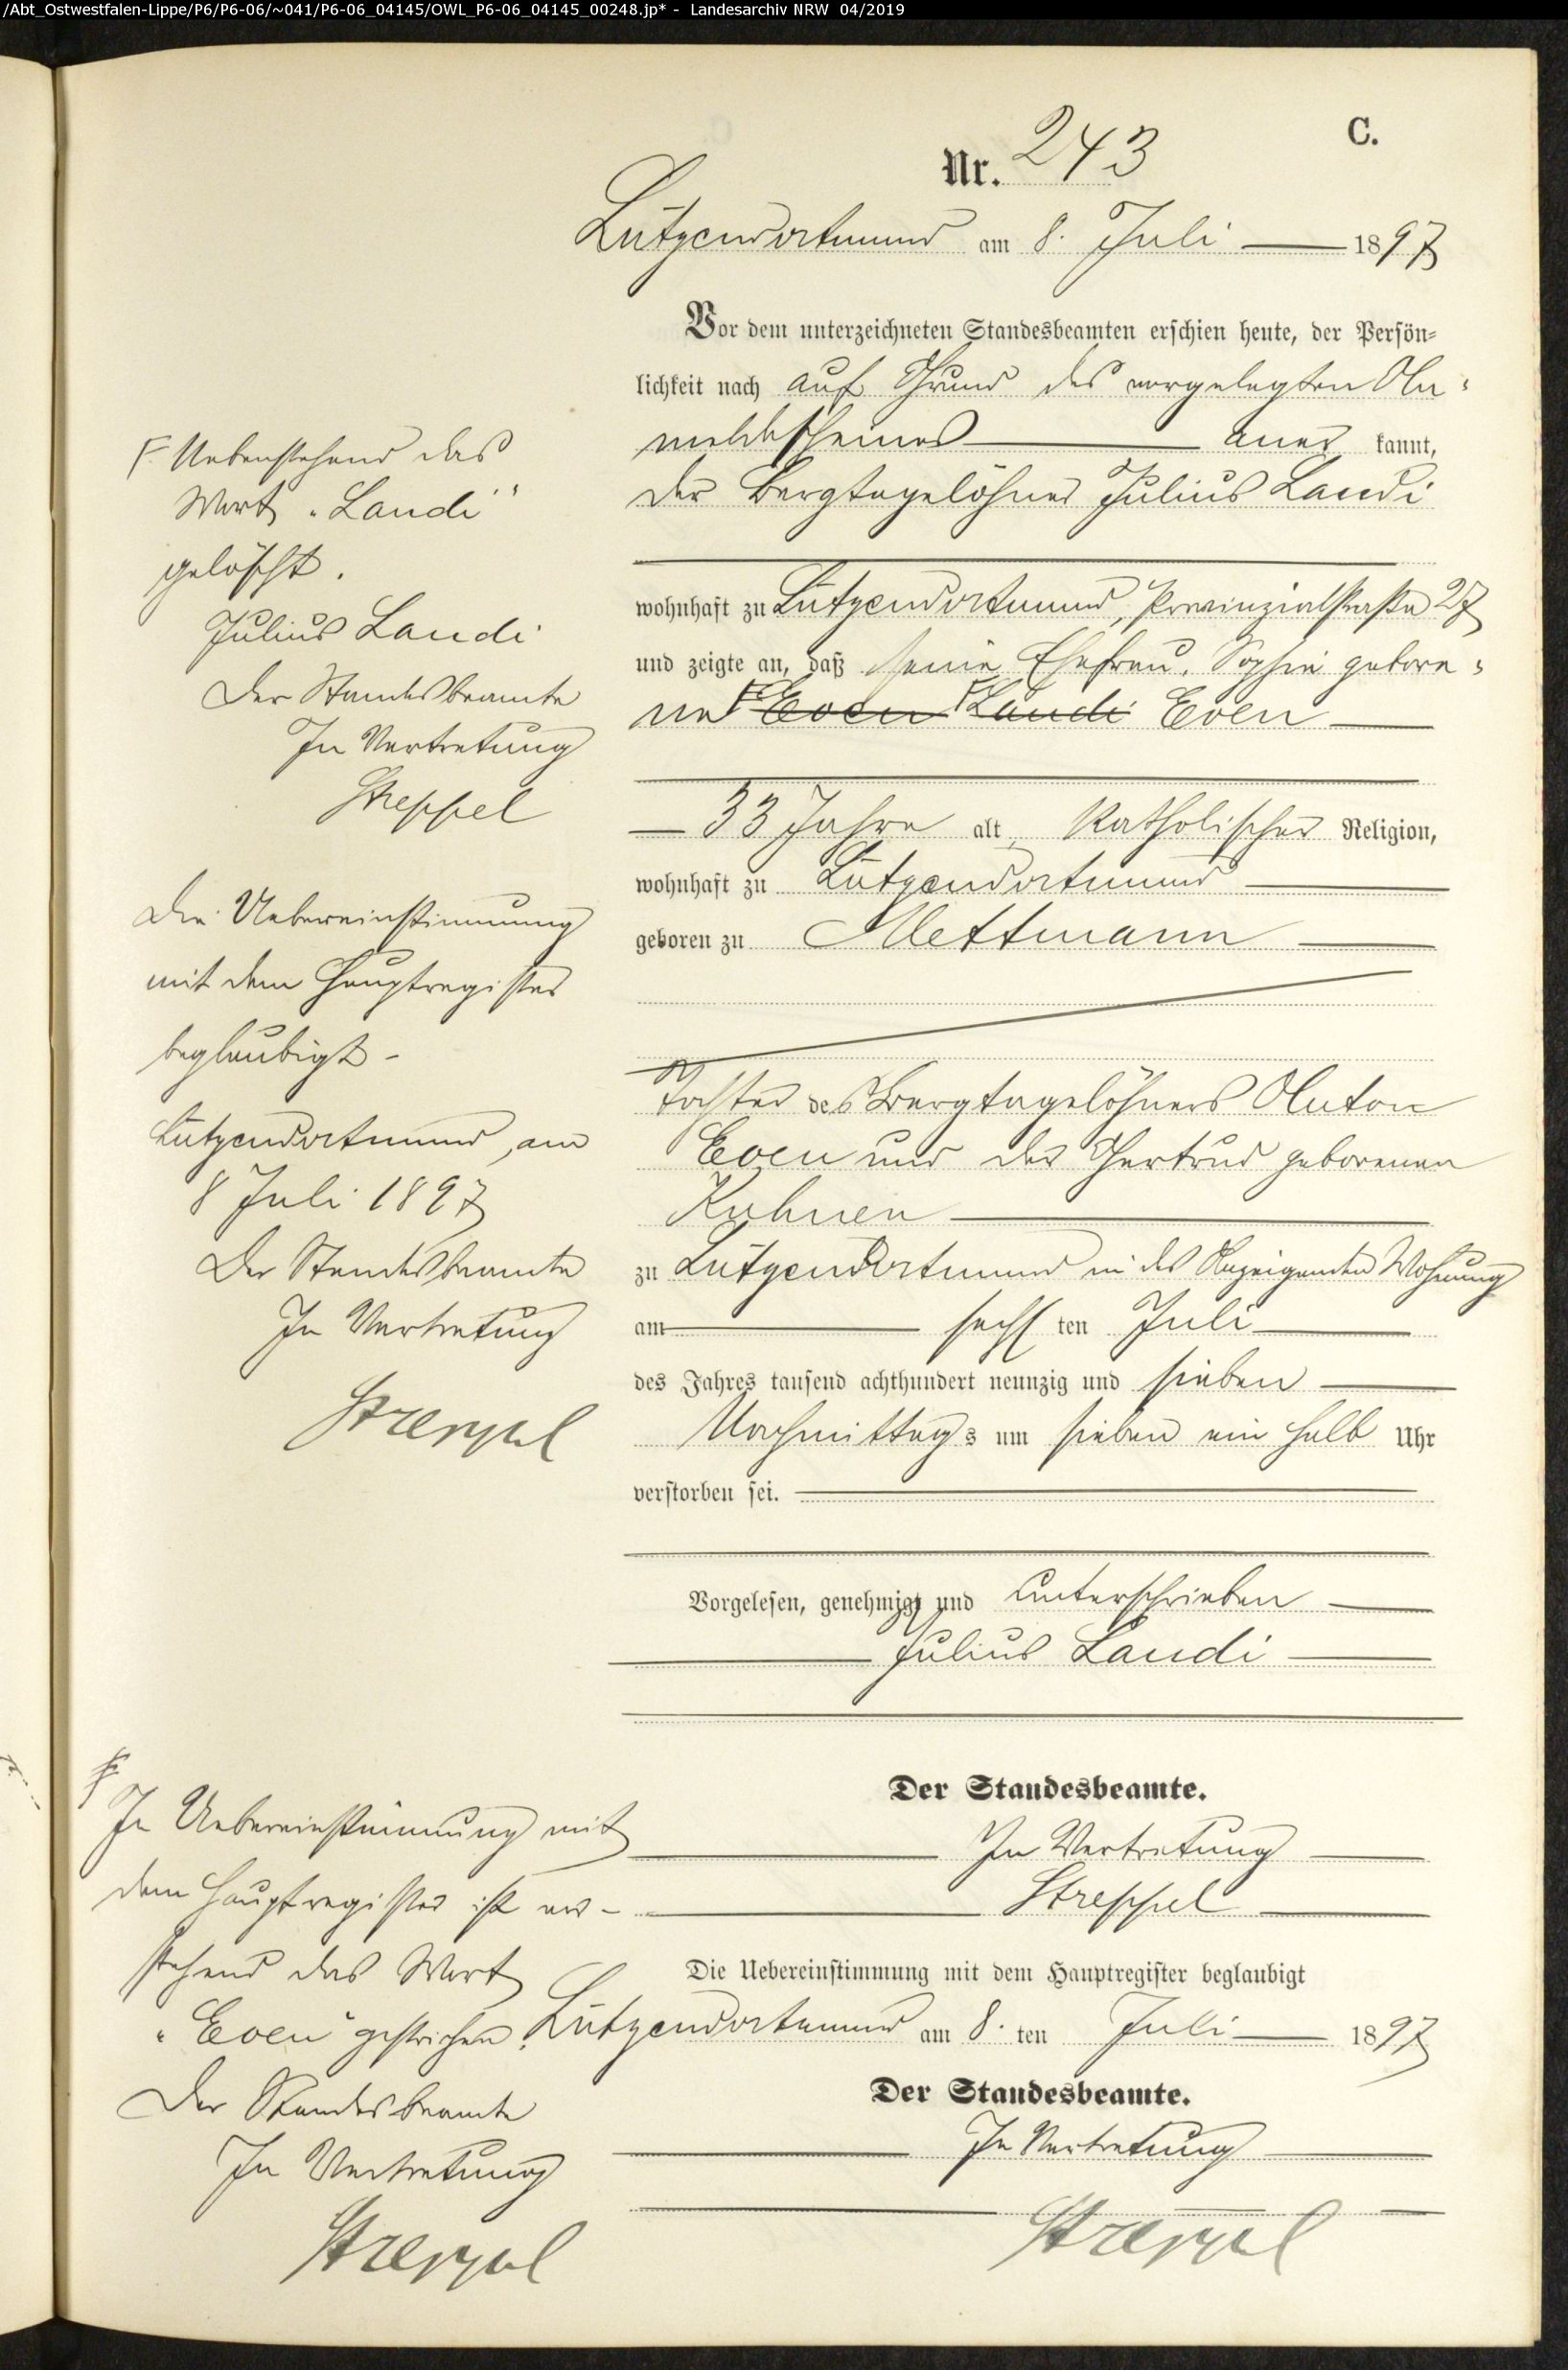 /Abt_Ostwestfalen-Lippe/P6/P6-06/~041/P6-06_04145/OWL_P6-06_04145_00248.jp* - Landesarchiv NRW 04/2019
C.
Nr. 243
Lütgendortmund am 8. Juli 1897
Vor dem unterzeichneten Standesbeamten erschien heute, der Persön-
lichkeit nach auf Grund des vorgelegten An-
meldescheines aner kannt,
der Bergtagelöhner Julius Landi
wohnhaft zu Lütgendortmund, Provinzialstraße 27
und zeigte an, daß seine Ehefrau, Sophie gebore-
ne Even Landi Even
33 Jahre alt, katholischer Religion,
wohnhaft zu Lütgendortmund
geboren zu Mettmann
Tochter des Bergtagelöhners Anton
Even und der Gertrud geborenen
Kuhnen
zu Lütgendortmund in des Anzeigenden Wohnung
am sechs ten Juli
des Jahres tausend achthundert neunzig und sieben
Nachmittags um sieben ein halb Uhr
verstorben sei.
Vorgelesen, genehmigt und unterschrieben
Julius Landi
Der Standesbeamte.
In Vertretung
Streppel
Die Uebereinstimmung mit dem Hauptregister beglaubigt
Lütgendortmund am 8. ten Juli 1897
Der Standesbeamte.
In Vertretung
Streppel
F. Nebenstehend das
Wort "Landi"
gelöscht.
Julius Landi
Der Standesbeamte
In Vertretung
Streppel
Die Uebereinstimmung
mit dem Hauptregister
beglaubigt-
Lütgendortmund, am
8 Juli 1897
Der Standesbeamte
In Vertretung
Streppel
F
In Uebereinstimmung mit
dem Hauptregister ist vor-
stehend das Wort
"Even" gestrichen.
Der Standesbeamte
In Vertretung
Streppel